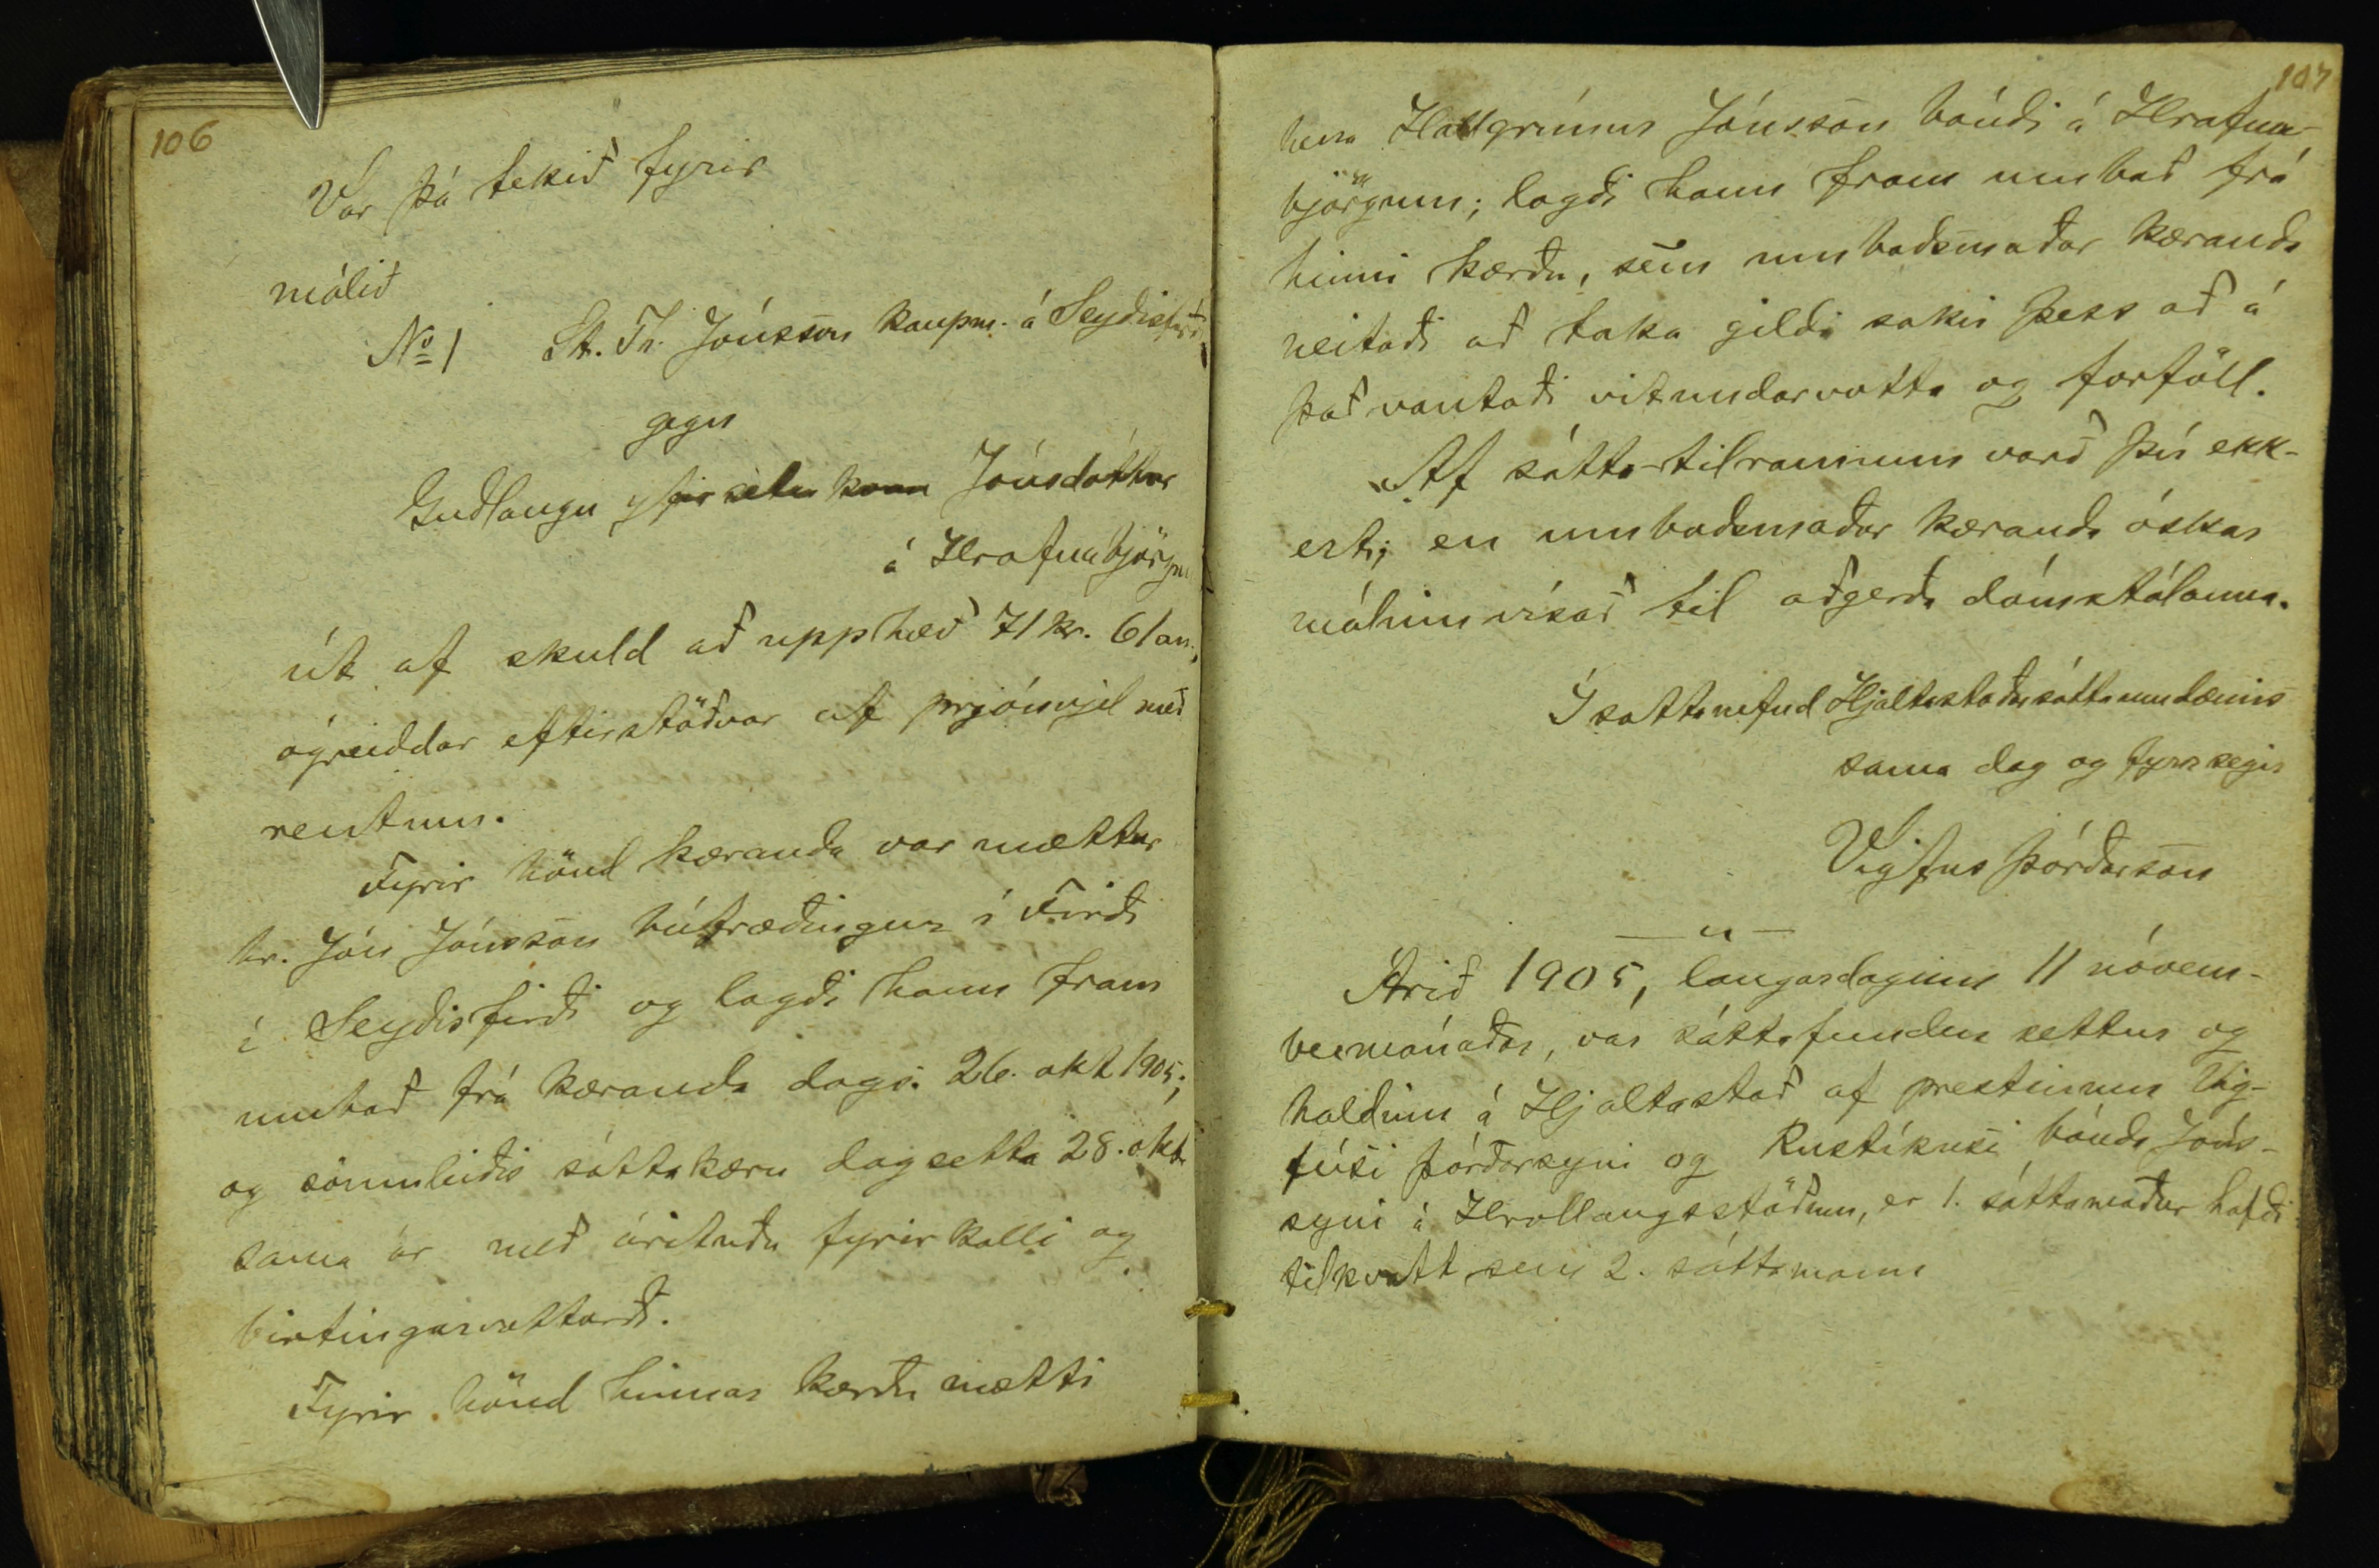 106
Var þá tekið fyrir
málið
No 1 St. Th. Jónsson kaupm. á Seyðisfirði
gegn
Guðlaugu yfirsetukonu Jónsdóttur
á Hrafnabjörgum
út af skuld að upphæð 71 kr. 61 au.,
ógreiddar eftirstöðvar af prjónvjel með
rentum.
Fyrir hönd kæranda var mættur
hr. Jón Jónsson búfræðingur í Firði
í Seyðisfirði og lagði hann fram
umboð frá kæranda dags. 26. okt 1905;
og sömuleiðis sáttakæru dagsetta 28. okt.
sama ár með árituðu fyrirkalli og
birtingarvottorði.
Fyrir hönd hinnar kærðu mætti
107
herra Hallgrímur Jónsson bóndi á Hrafna-
björgum; lagði hann fram umboð frá
hinni kærðu, sem umboðsmaður kæranda
neitaði að taka gildi sakir þess að á
það vantaði vitundarvotta og forföll.
Af sátta-tilraunum varð því ekk-
ert; en umboðsmaður kæranda óskar
málinu vísað til aðgerða dómstólanna.
Í sáttanefnd Hjaltastaðasáttaumdæmis
sama dag og fyrr segir
Vigfus Þórðarson
— " —
Árið 1905, laugardaginn 11 nóvem-
bermánaðar, var sáttafundur settur og
haldinn á Hjaltastað af prestinum Vig-
fúsi Þórðarsyni og Rustíkusi bónda Jóns-
syni á Hrollaugsstöðum, er 1. sáttamaður hafði
tilkvatt sem 2. sáttamann